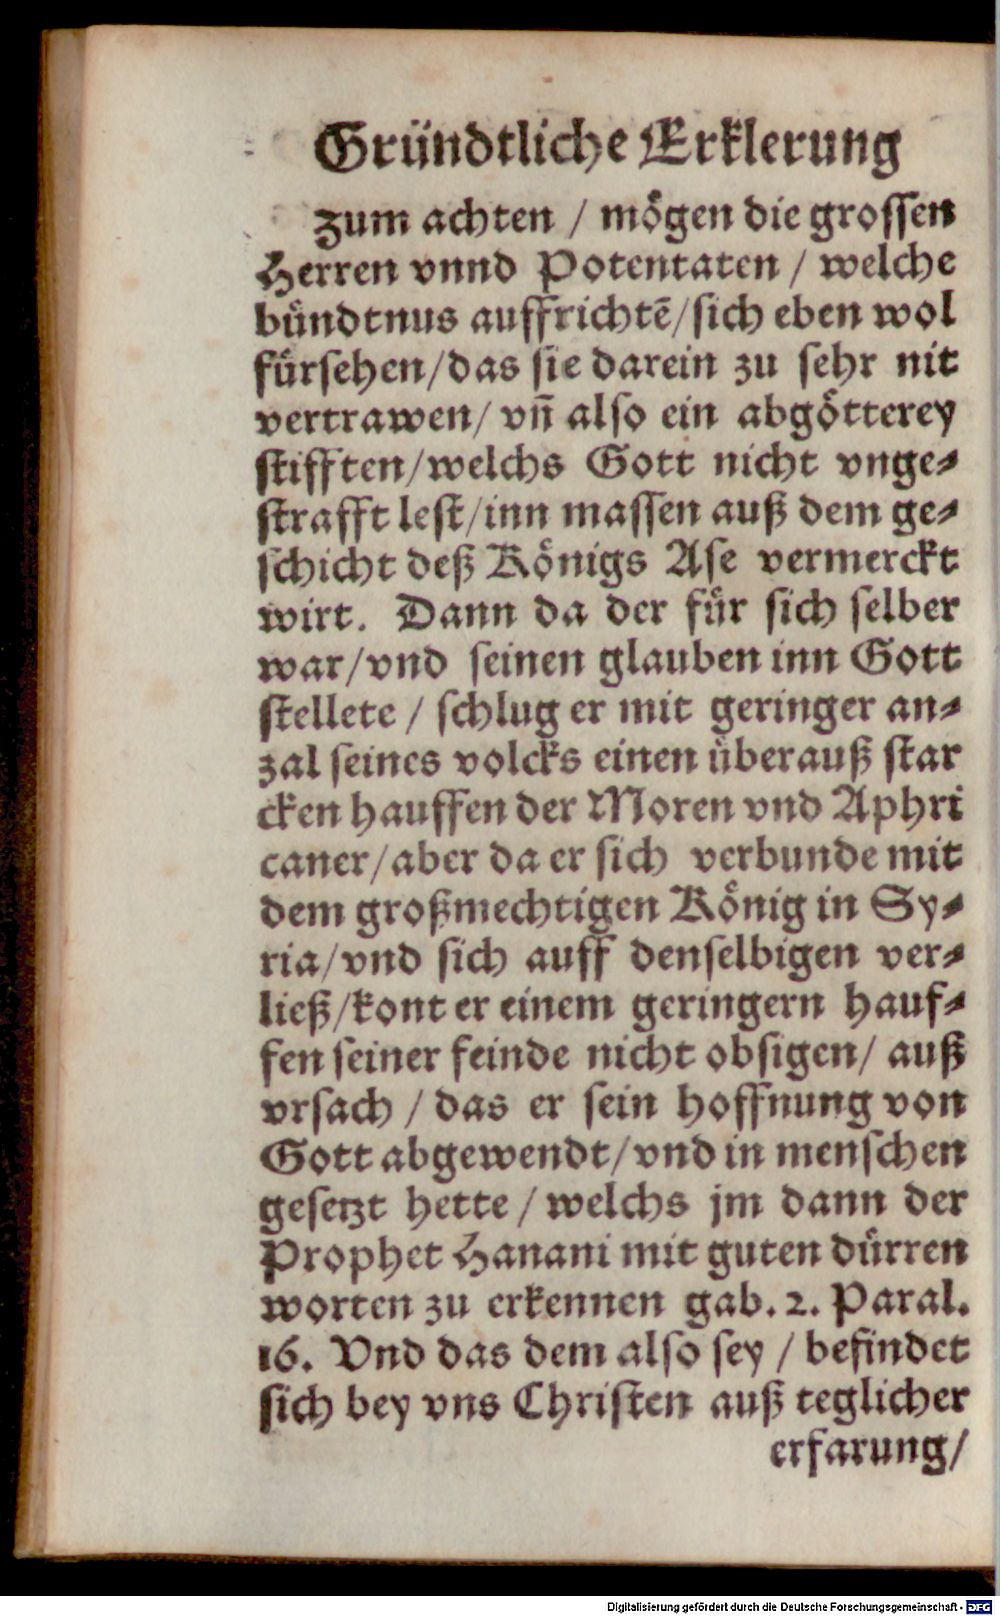 Gründtliche Erklerung
zum achten / mögen die grossen
Herren vnnd Potentaten / welche
bündtnus auffrichtē/sich eben wol
fürsehen/das sie darein zu sehr nit
vertrawen/ vñ also ein abgötterey
stifften/welchs Gott nicht vnge⸗
strafft lest/inn massen auß dem ge⸗
schicht deß Königs Ase vermerckt
wirt. Dann da der für sich selber
war/vnd seinen glauben inn Gott
stellete / schlug er mit geringer an⸗
zal seines volcks einen überauß star
cken hauffen der Moren vnd Aphri
caner/aber da er sich verbunde mit
dem großmechtigen König in Sy⸗
ria/vnd sich auff denselbigen ver⸗
ließ/kont er einem geringern hauf⸗
fen seiner feinde nicht obsigen/ auß
vrsach / das er sein hoffnung von
Gott abgewendt/vnd in menschen
gesetzt hette / welchs jm dann der
Prophet Hanani mit guten dürren
worten zu erkennen gab. 2. Paral.
16. Vnd das dem also sey / befindet
sich bey vns Christen auß teglicher
erfarung/
Digitalisierung gefördert durch die Deutsche Forschungsgemeinschaft - DFG